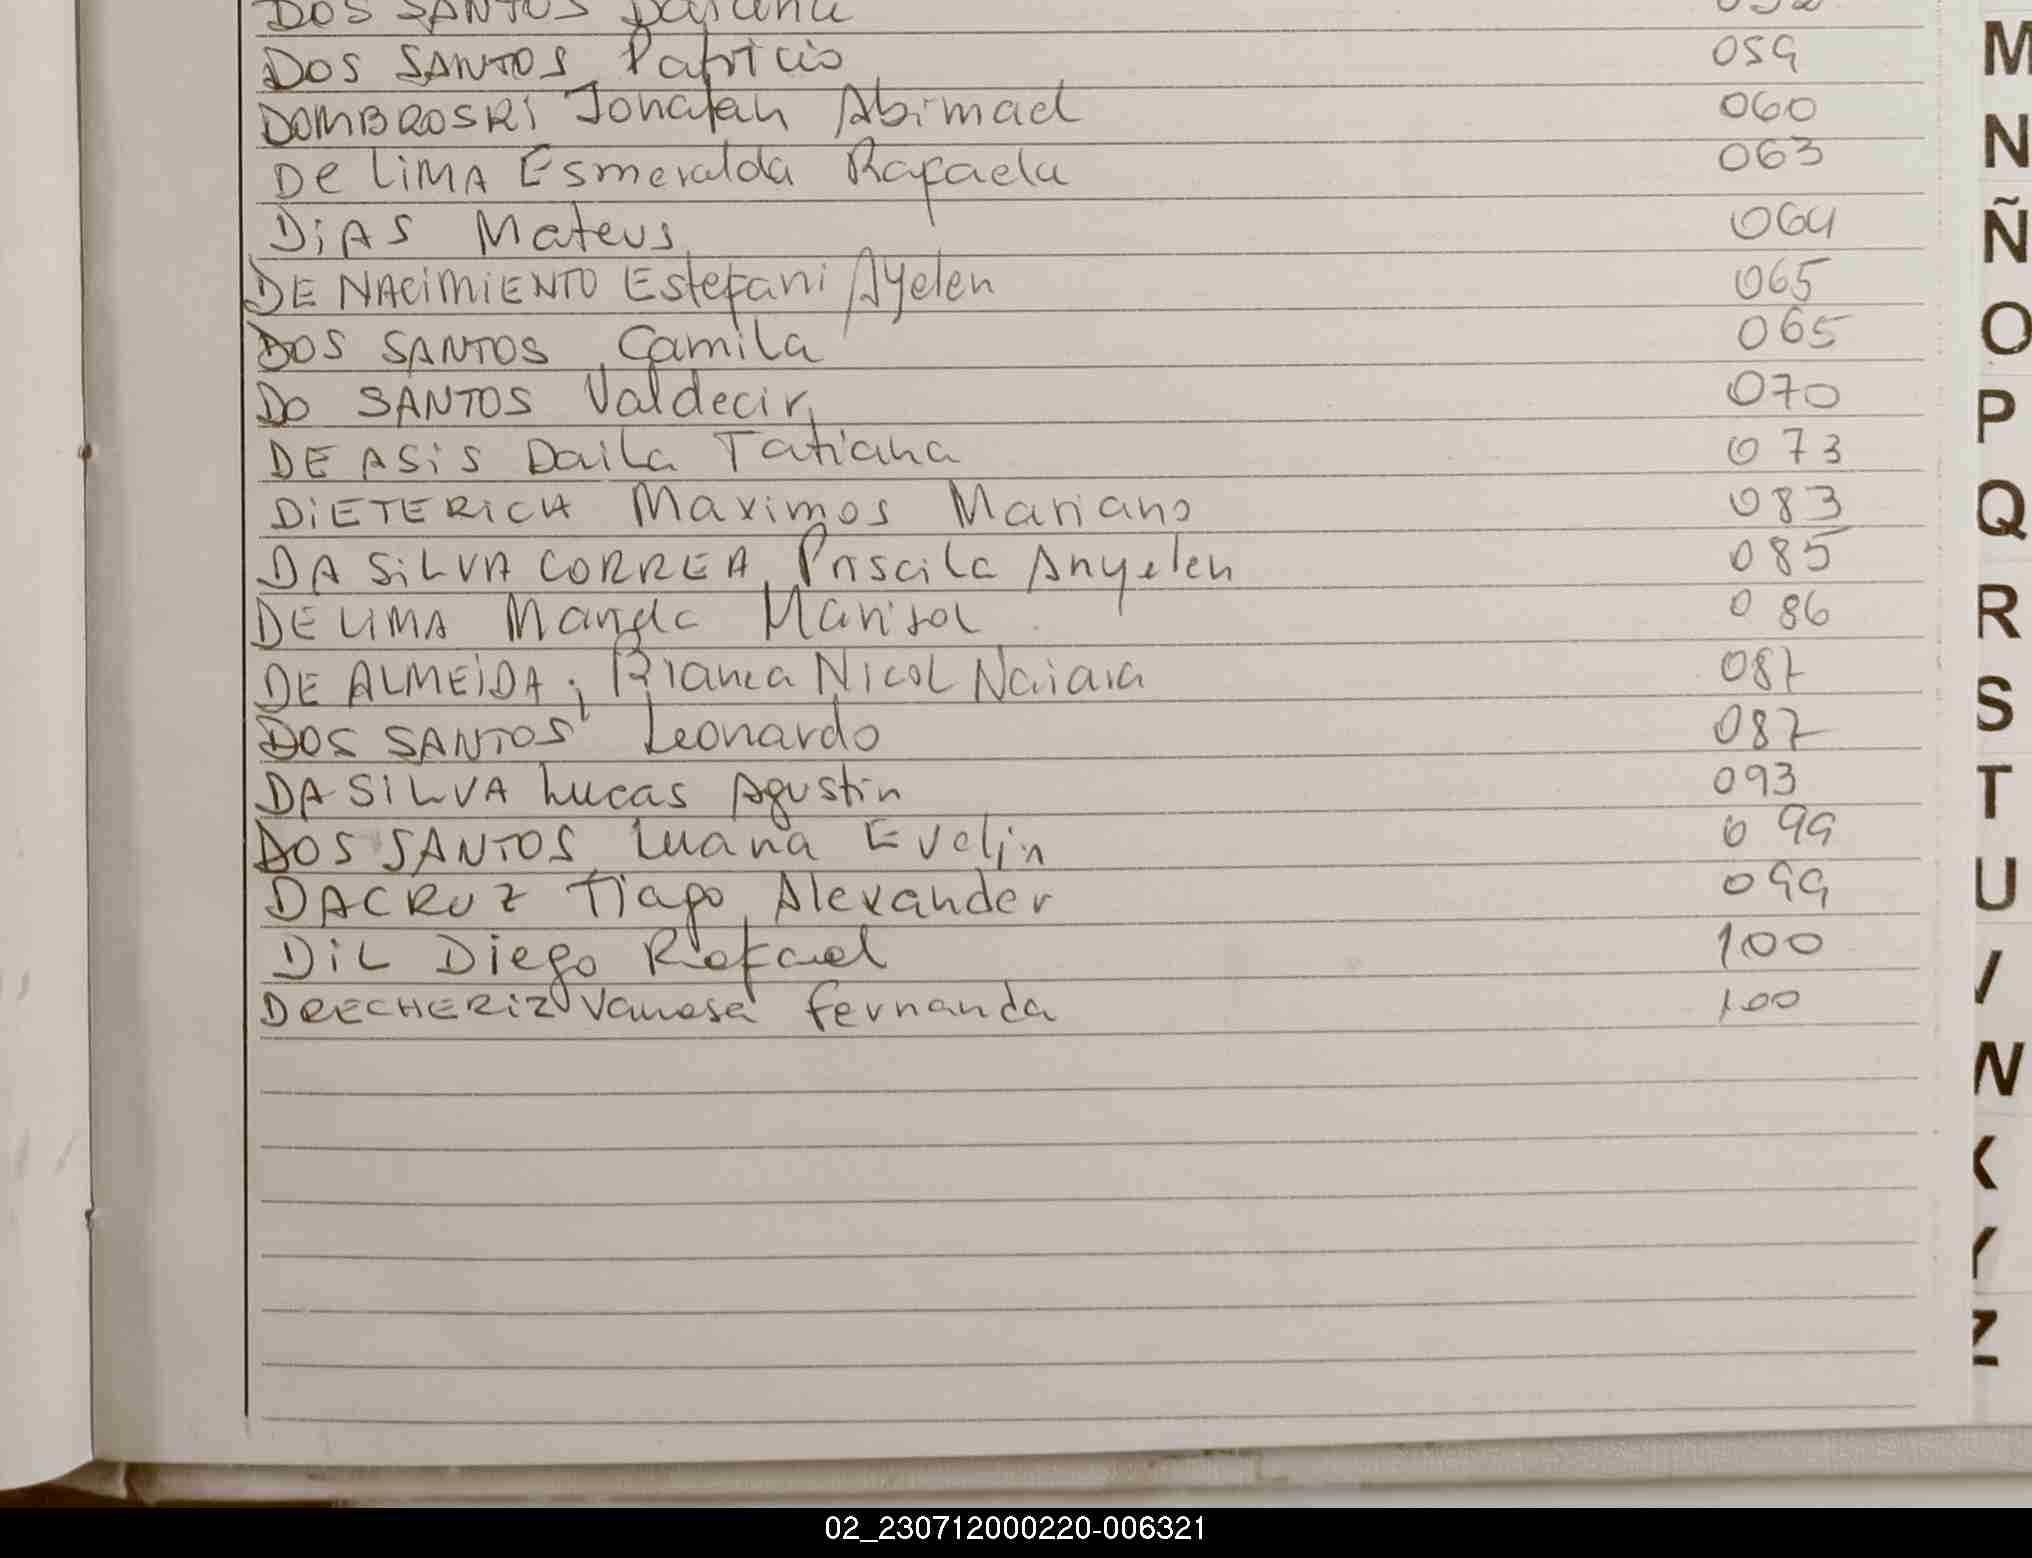 DOS SANTOS Daiana 052
DOS SANTOS Patricio 059
DOMBROSRI Jonatan Abimael 060
De LiMA Esmeralda Rafaela 063
DiAS Mateus 064
DE NACiMiENTO Estefani Ayelen 065
DOS SANTOS Camila 065
DO SANTOS Valdecir 070
DE ASiS Daila Tatiana 073
DiETERiCH Maximos Mariano 083
DA SiLVA CORREA Priscila Anyelen 085
DE LiMA Mariela Marisol 086
DE ALMEiDA, Bianca Nicol Naiara 087
DOS SANTOS Leonardo 087
DA SiLVA Lucas Agustin 093
DOS SANTOS Luana Evelin 099
DACRUZ Tiago Alexander 099
DiL Diego Rafael 100
DRECHERiZ Vanesa Fernanda 100
M
N
Ñ
O
P
Q
R
S
T
U
V
W
X
Y
Z
02_230712000220-006321